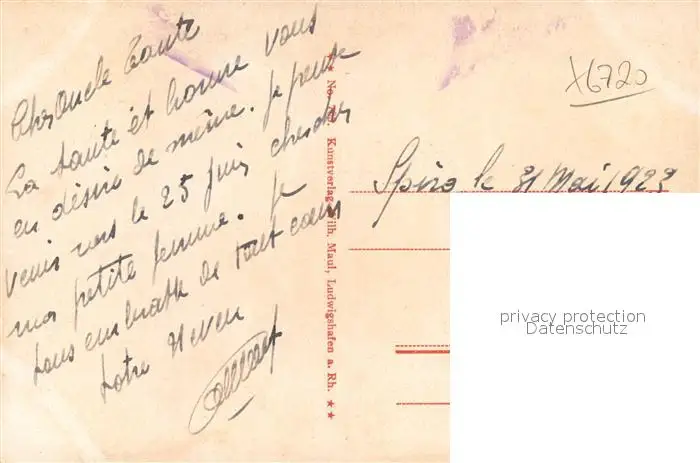 Cher Oncle Tante
La santé est bonne vous
en désire de même. Je pense
venir vers le 25 juin chercher
ma petite femme. Je
vous embrasse de tout cœur
Votre Neveu
Kunstverlag Wilh. Maul, Ludwigshafen a. Rh. ★★
X6720
Spire le 31 Mai 1923
privacy protection
Datenschutz